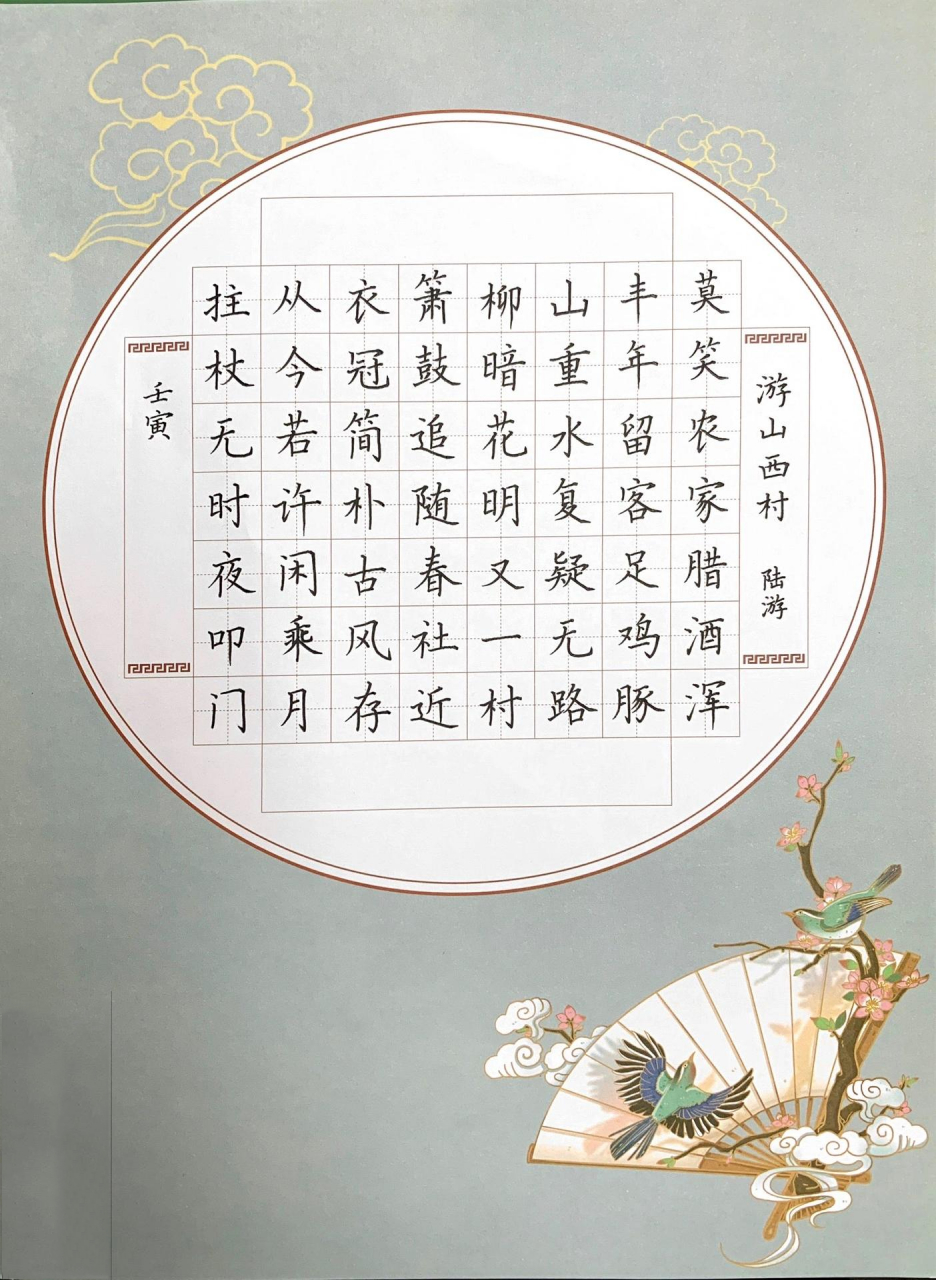 游山西村 陆游
莫笑农家腊酒浑
丰年留客足鸡豚
山重水复疑无路
柳暗花明又一村
箫鼓追随春社近
衣冠简朴古风存
从今若许闲乘月
拄杖无时夜叩门
壬寅